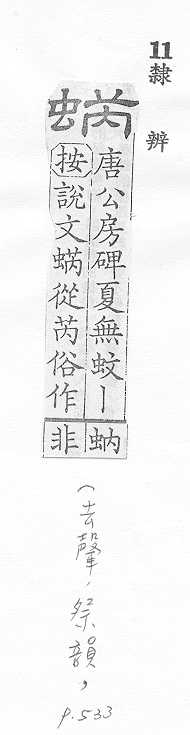 11隸辨
蜹
唐公房碑夏無蚊丨
按說文蜹從芮俗作
蚋非
(去聲,祭韻,
p.533